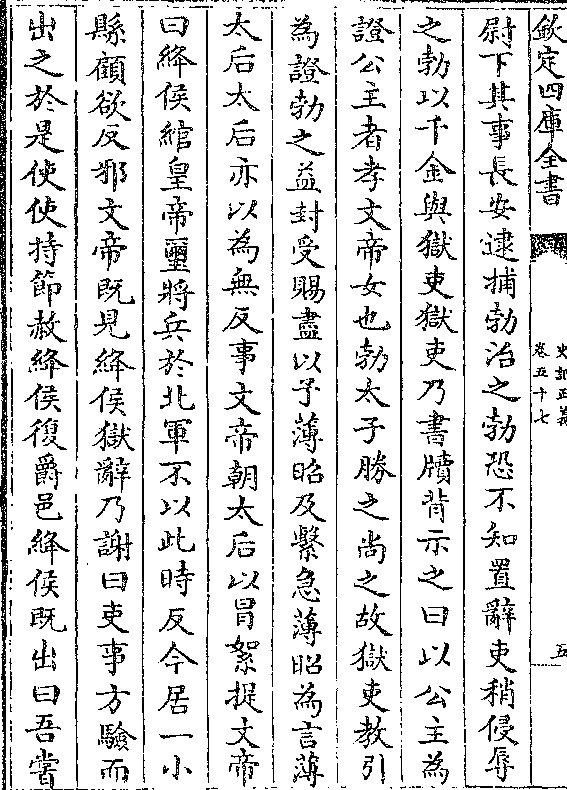 欽定四庫全書
史記正義
卷五十七
五
尉下其事長安逮捕勃治之勃恐不知置辭吏稍侵辱
之勃以千金與獄吏獄吏乃書牘背示之曰以公主為
證公主者孝文帝女也勃太子勝之尚之故獄吏教引
為證勃之益封受賜盡以予薄昭及繫急薄昭為言薄
太后太后亦以為無反事文帝朝太后以冒絮提文帝
曰絳侯綰皇帝璽將兵於北軍不以此時反今居一小
縣顧欲反邪文帝既見絳侯獄辭乃謝曰吏事方驗而
出之於是使使持節赦絳侯復爵邑絳侯既出曰吾嘗